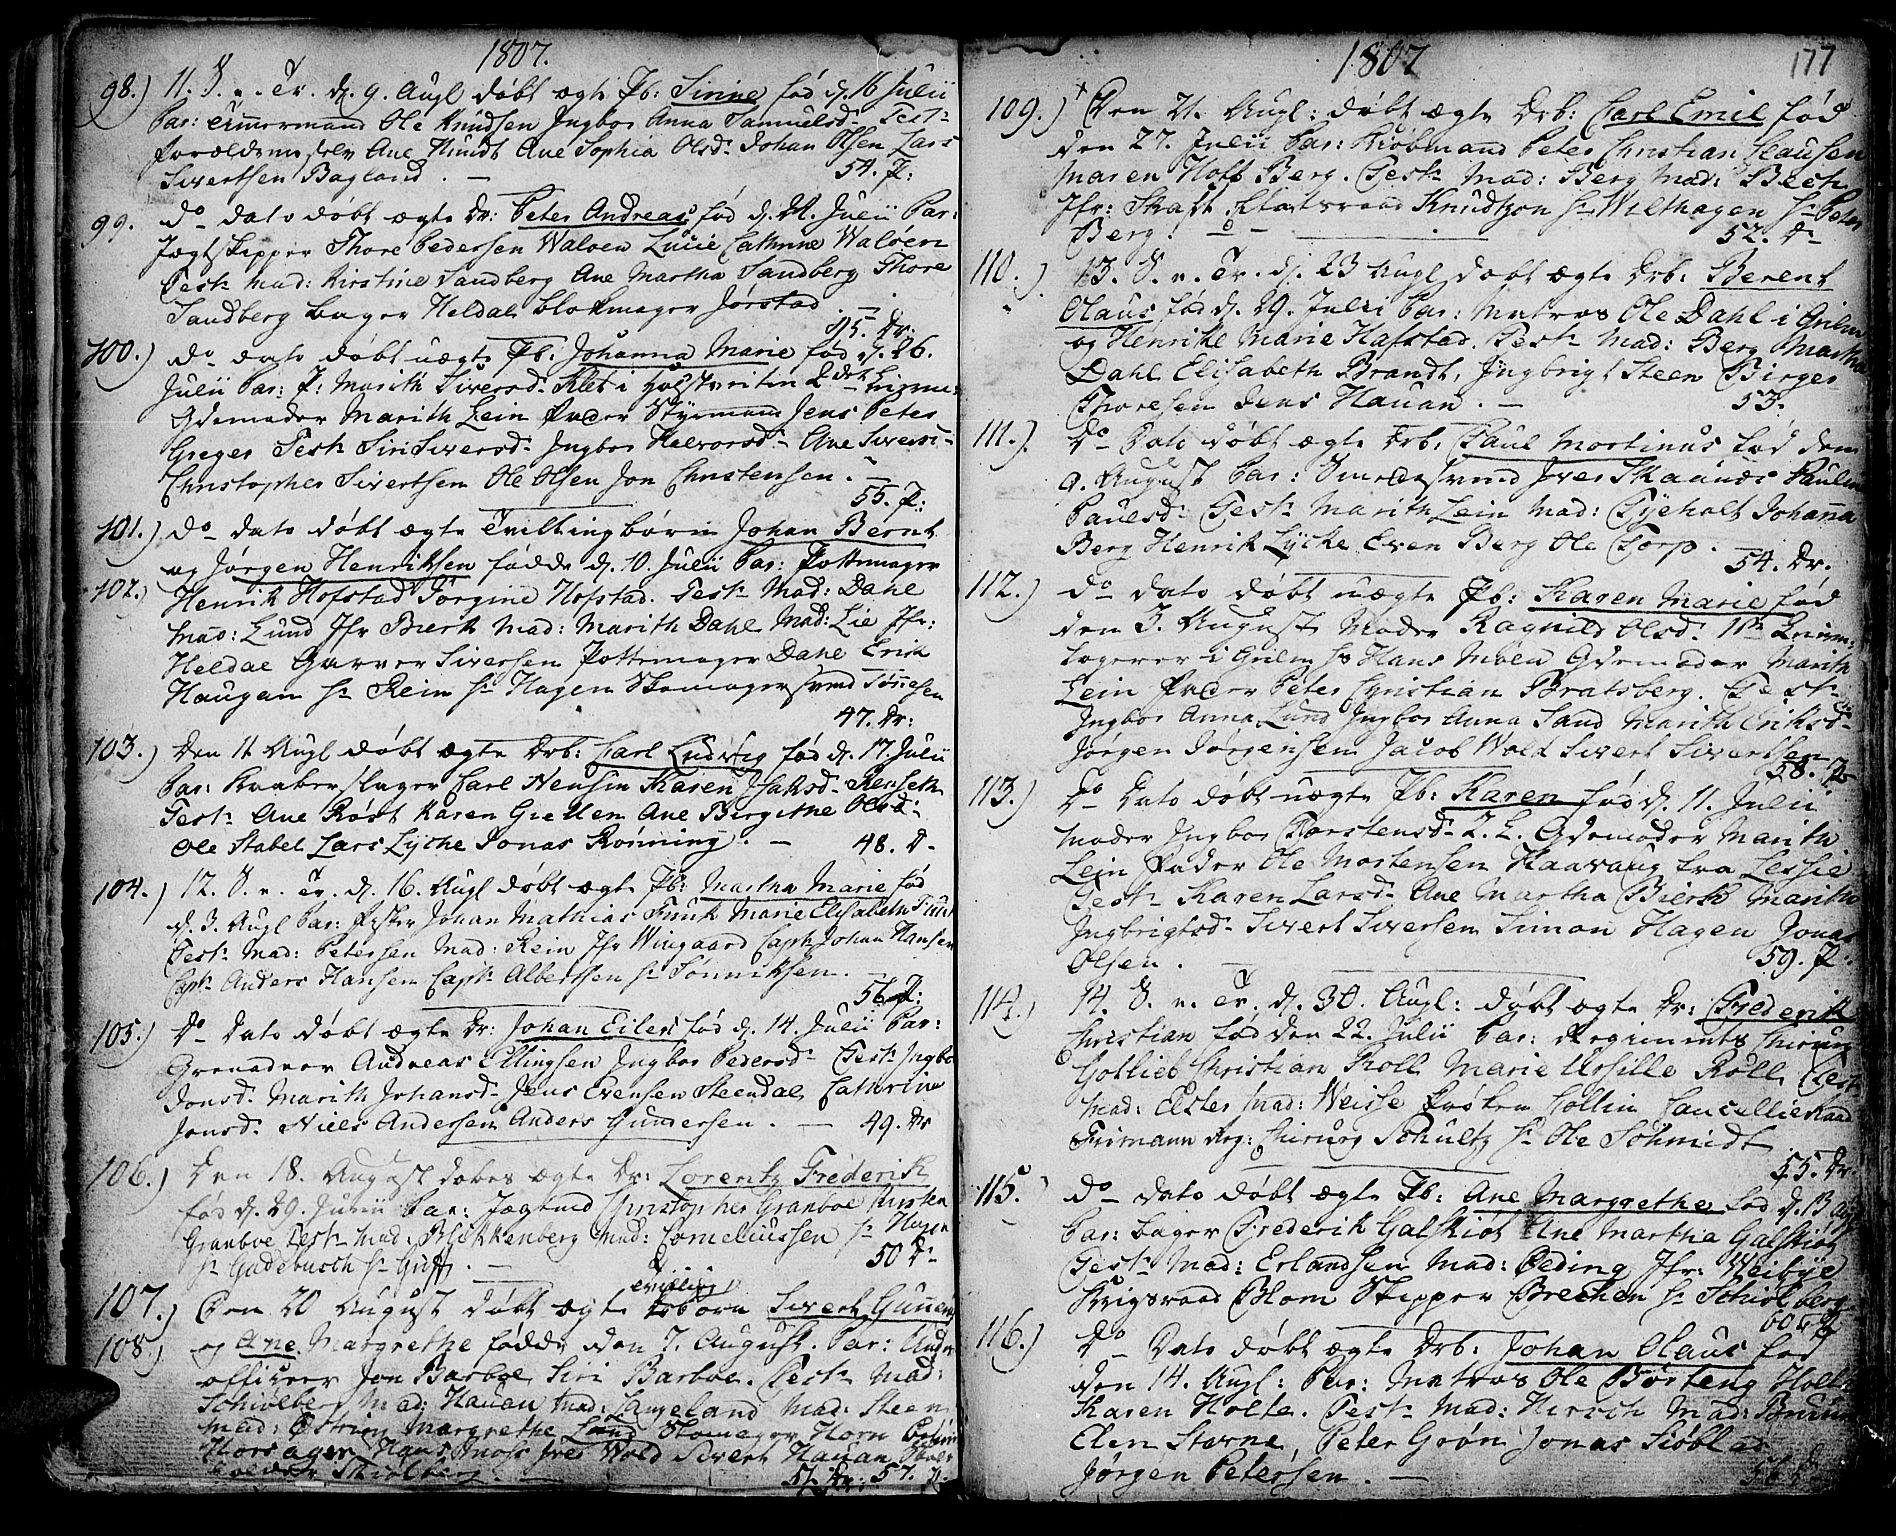 1807.
98.) 11. S. n. Tr. d. 9. Augl døbt ægte Pb: Sirine fød d. 16 Julii
Par: Timmermand Ole Knudsen Ingbor Anna Samuelsd. Test:
forældrene selv Ane Hundt Ane Sophia Olsd. Johan Olsen Lars
Sivertsen Bagland. — 54. P:
99. do dato døbt ægte Dr: Peter Andreas fød d. 21. Julii Par:
Jægtskipper Thore Pedersen Waløen Lucie Cathrine Waløen
Test: Mad: Kirstine Sandberg Ane Martha Sandberg Thore
Sandberg Bager Heldal blokmager Jørstad. —
45. Dr:
100.) do dato døbt uægte Pb: Johanna Marie fød d. 26.
Julii Par: P: Marith Siversd. Klet i 2det
Gdemoder Marith Lein fader Styrmann Jens Peter
Greger Test: Siri Siversd. Ingbor Halvorsd. Ane Siversd.
Christopher Sivertsen Ole Olsen Jon Christensen. —
55. P:
101.) do dato døbt ægte Tvillingbørn Johan Bernt
og Jørgen Henriksen fødde d. 10. Julii Par: Pottemager
102.) Henrik Hofstad Jørgine Hofstad. Test: Mad: Dahl
Mad: Lund Jfr Bierk Mad: Marith Dahl Mad: Lie Jfr:
Heldal Garver Siversen Pottemager Dahl Erik
Haugan Hr Rein Hr Hagen Skomagersvend Tønnesen
47. Dr:
103.) Den 11 Augl døbt ægte Drb: Carl Ludvig fød d. 17. Julii
Par: Kaaberslager Carl Hensin Karen Isaksd. Renseth
Test: Ane Røst Karen Gretten Ane Birgithe Olsd.
Ole Stabel Lars Lyche Jonas Rønning. — 48. D.
104.) 12. S. n. Tr. d. 16. Augl døbt ægte Pb: Martha Marie fød
d. 3. Augl Par: Johan Mathias Funk Marie Elisabeth Funk
Test: Mad: Petersen Mad: Rein Jfr Wingaard Capt: Johan Hansen
Capt: Anders Hansen Capt: Albertsen Hr Sønniksen. —
56 P:
105.) Do Dato døbt ægte Dr: Johan Eiler fød d. 14. Julii Par:
Grenadeer Andreas Ellingsen Ingbor Pedersd. Test: Ingbor
Jonsd. Marith Johansd. Jens Evensen Steendal Cathrine
Jonsd. Niels Andersen Anders Gundersen. — 49. Dr
106.) Den 18. August døbes ægte Dr: Lorentz Frederik
fød d. 29. Junii Par: Jægtmd Christopher Granboe Kirsten
Granboe Test: Mad: Blikkenberg Mad: Corneliussen Hr Hagen
Hr Gadebusch Hr Guff. — 50 Dr
107.) Den 20 August døbt ægte Tvilling børn Sivert Gunerius
108) og Ane Margrethe fødde den 7. August. Par: Under
officeer Jon Barboe Siri Barboe. Test: Mad:
Schiølberg Mad: Hauan Mad: Langeland Mad: Steen
Mad: Margrethe Lund Skomager Horn
Hans Moss Iver Wold Sivert Hauan
Schiølberg. — 51. Dr: 57. P.

1807 177
109.) Den 21. Augl: døbt ægte Drb: Carl Emil fød
den 27. Julii Par: Kiøbmand Peter Christian Clausen
Maren Hoff Berg. Test: Mad: Berg Mad: Bech
Jfr: Skaft Etatsraad Knudtzon Hr Wilthagen Hr Peter
Berg. — 52. Dr
110.) 13. S. n. Tr. d. 23 Augl døbt ægte Drb: Berent
Olaus fød d. 29. Julii Par: Matros Ole Dahl i
og Henrikke Marie Hafstad. Test: Mad: Berg Martha
Dahl Elisabeth Brandt, Ingbrigt Steen Birger
Thoresen Jens Hauan. — 53.
111.) Do Dato døbt ægte Drb: Paul Martinus fød den
9. August Par: Smedesvend Iver Skaanes
Paulsd. Test: Marith Lein Mad: Tyeholt Johanna
Berg Henrik Lyche Even Berg Ole Torp. —
54. Dr.
112.) do dato døbt uægte Pb: Karen Marie fød
den 3. August Moder Ragnild Olsd. 1ste
Logerer i Hr Hans Møen Gdemoder Marith
Lein fader Peter Christian Bratsberg. Test:
Ingbor Anna Lund Ingbor Anna Sand Marith Eriksd.
Jørgen Jørgensen Jacob Wold Sivert Sivertsen
58. P
113.) Do Dato døbt uægte Pb: Karen fød d. 11. Julii
Moder Ingbor Torstensd. 2. L. Gdemoder Marith
Lein fader Ole Mortensen Haavaug fra Lessie
Test: Karen Larsd. Ane Martha Bierk Marith
Ingbrigtsd. Sivert Siversen Simon Hagen Jonas
Olsen. — 59. P.
114.) 14. S. n. Tr. d. 30. Augl: døbt ægte Dr: Frederik
Christian fød den 22. Julii Par: Regiments Chirurg
Gotlieb Christian Roll Marie Ursille Roll Test:
Mad: Elster Mad: Weisse Frøken Collin Cancellieraad
Reg: Chirurg Schultz Hr Ole Schmidt
55. Dr.
115.) do dato døbt ægte Pb: Ane Margrethe fød d. 13 Augl
Par: Bager Frederik Galskiøt Ane Martha Galskiøt
Test: Mad: Erlandsen Mad: Øeding Jfr: Weibye
Krigsraad Blom Skipper Brechen Hr Schiølberg
60. P
116.) Do Dato døbt ægte Drb: Johan Olaus fød
den 14. Augl: Par: Matros Ole Børteng Holte
Karen Holte. Test: Mad: Hirsch Mad: Bruun
Elen Storne, Peter Grøn Jonas Siøblad
Jørgen Petersen. — 56 Dr